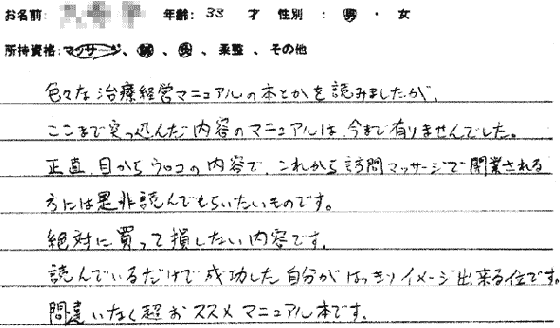 お名前: 年齢: 33 才 性別: 男 ・ 女
所持資格: マッサージ、鍼、灸、柔整、その他
色々な治療経営マニュアルの本とかを読みましたが、
ここまで突っ込んだ内容のマニュアルは、今まで有りませんでした。
正直、目からウロコの内容で、これから訪問マッサージで開業される
方には是非読んでもらいたいものです。
絶対に買って損しない内容です。
読んでいるだけで成功した自分がはっきりイメージ出来る位です。
間違いなく超おススメマニュアル本です。